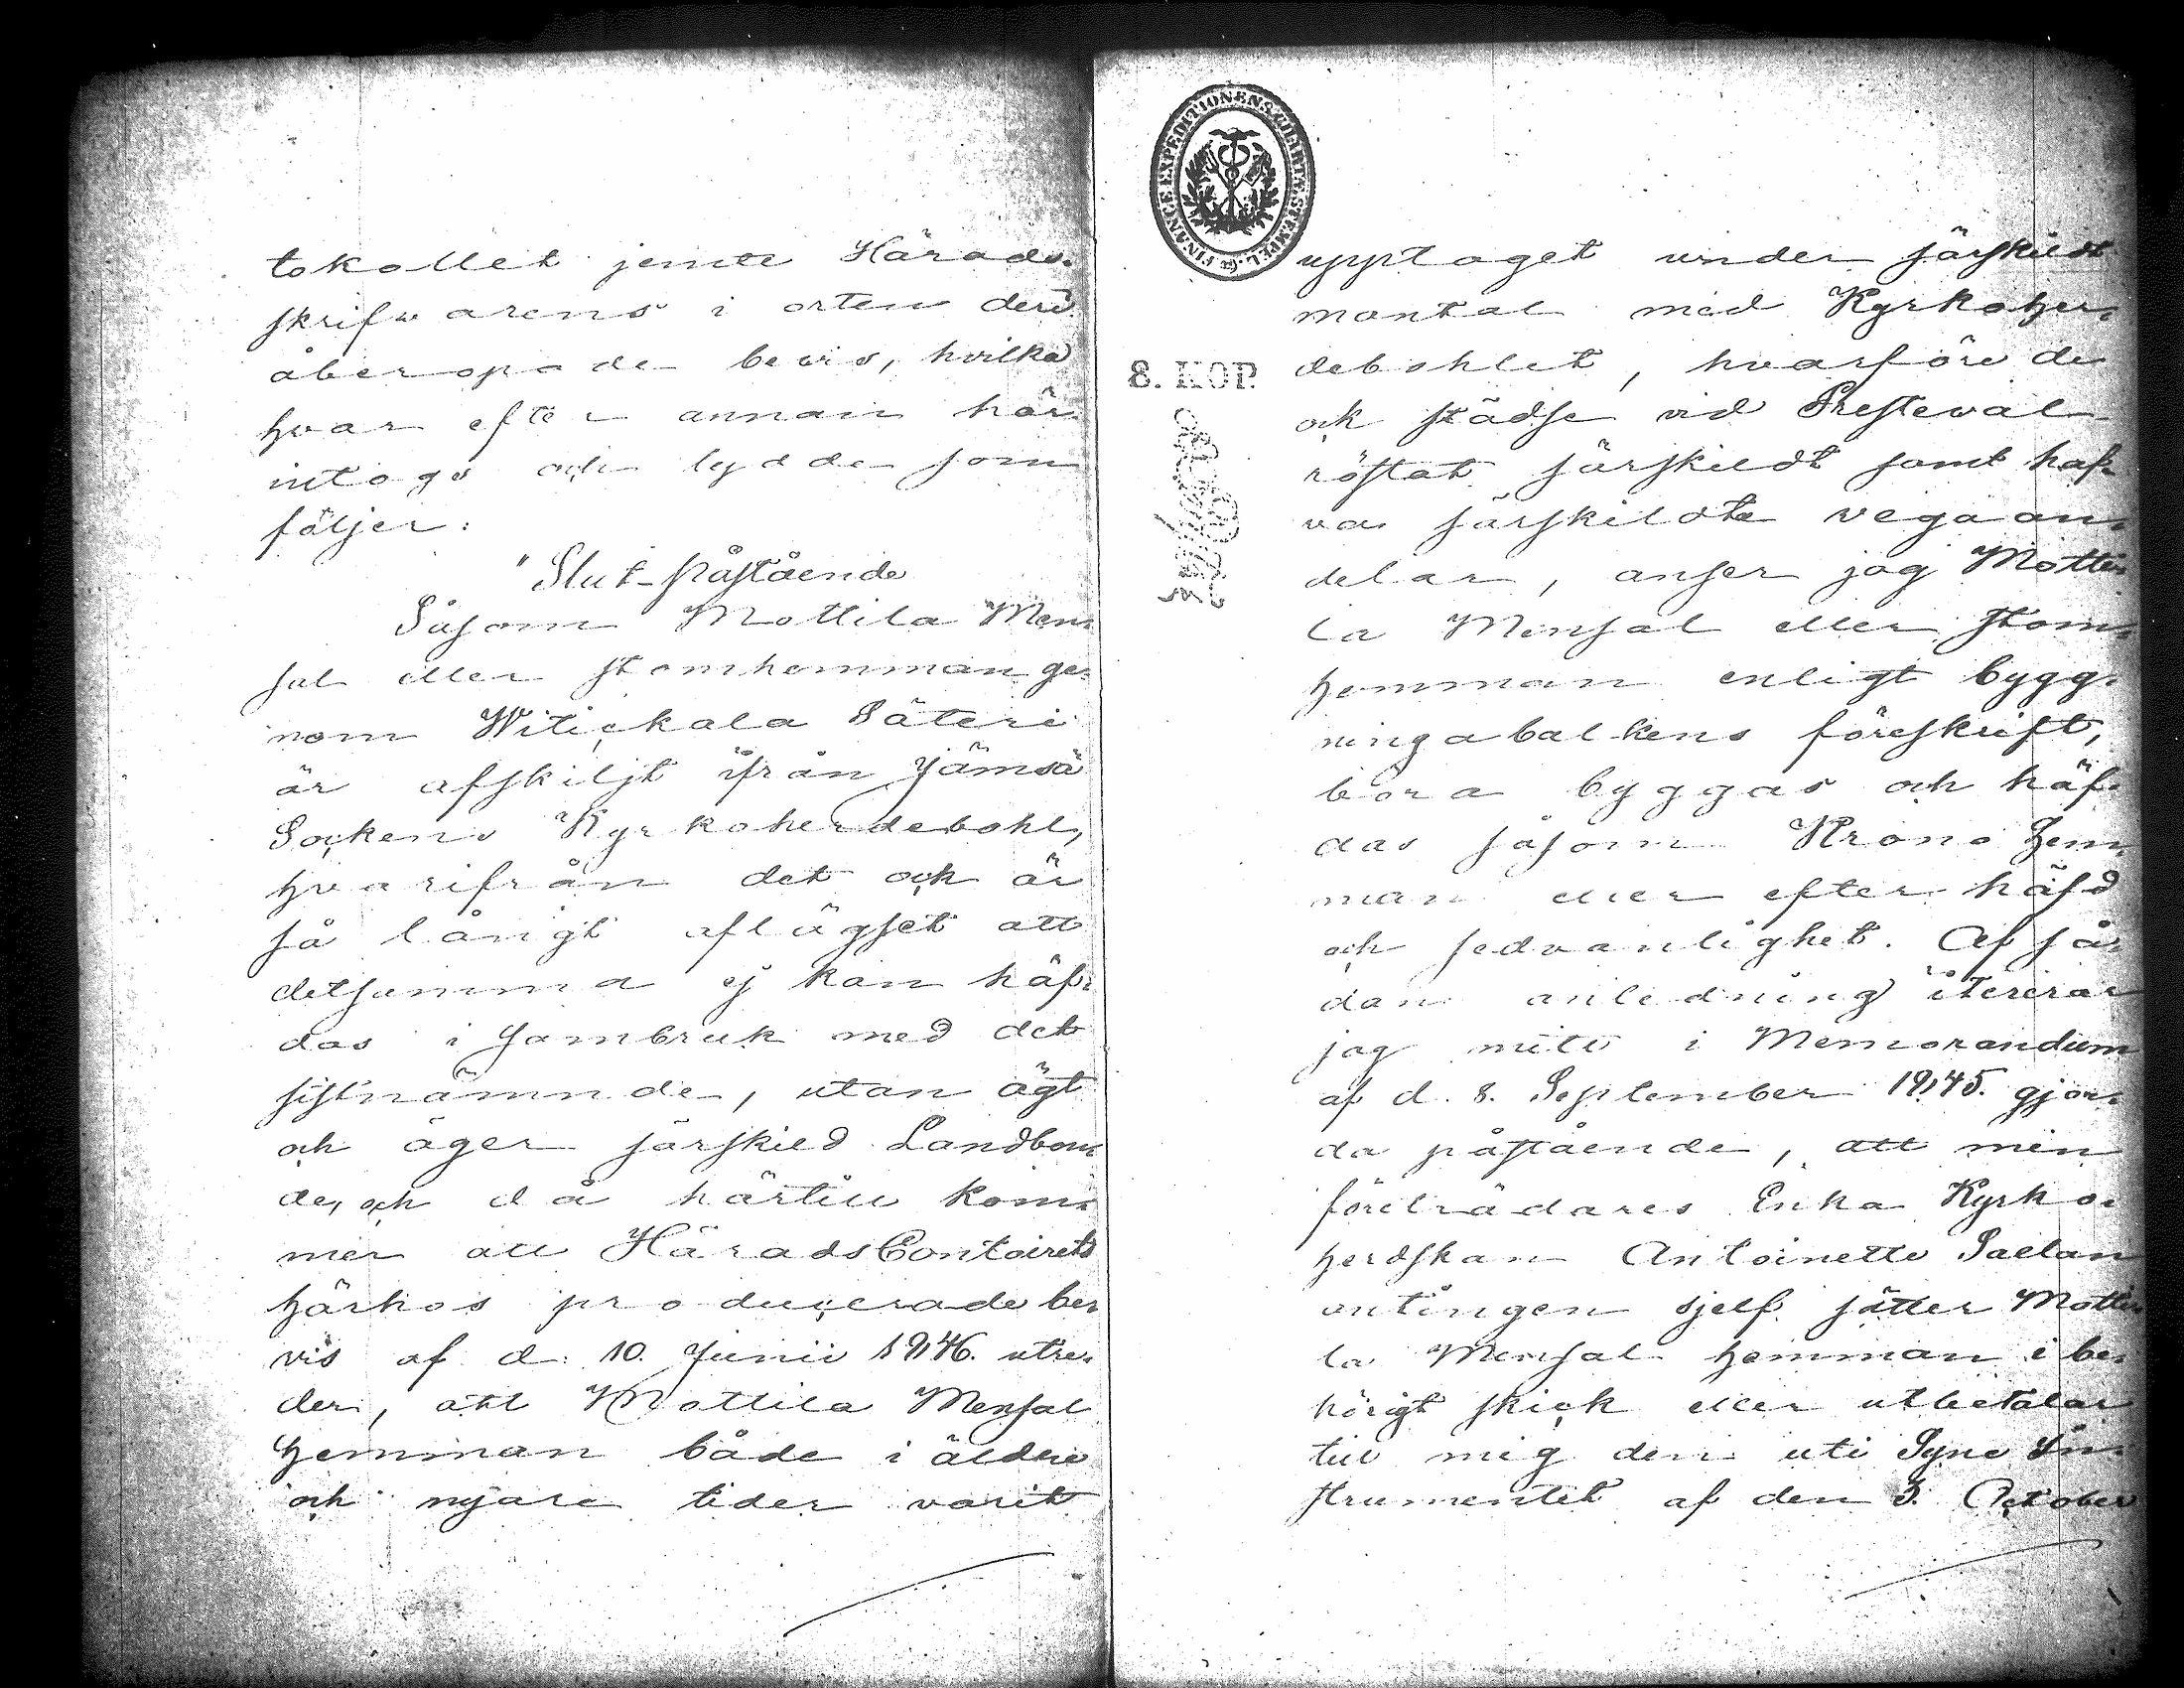 tokollet jemte Härads-
skrifvarens i orten deri
åberopade bevis, hvilka
hvar efter annan här
intogs och lydde som
följer:
"Slut-påstående
Såsom Mottila Men-
sal eller stomhemman ge-
nom Witickala Säteri
är afskiljt ifrån Jämsä
Sockens Kyrkoherdebohl,
hvarifrån det ock är
så långt aflägset att
detsamma ej kan häf-
das i sambruk med det
sistnämnde, utan ägt
och äger särskild Landbon-
de, och då härtill kom-
mer att HäradsContoirets
härhos producerade be-
vis af d. 10. Junii 1846. utre-
der, att Mottila Mensal
hemman både i äldre
och nyare tider varit
FINANCE EXPEDITIONENS CHARTÆ STEMPEL.
8. KOP.
upptaget under särskildt
mantal med Kyrkoher-
debohlet, hvarföre de
ock städse vid Presteval
röstat särskildt samt haf-
va särskildta vegaan-
delar, anser jag Motti-
la Mensal eller stom-
hemman enligt bygg-
ningabalkens föreskrift,
böra byggas och häf-
das såsom Krono hem-
man eller efter häfd
och sedvanlighet. Af så-
dan anledning itererar
jag mitt i Memorandum
af d. 8. September 1845. gjor-
da påstående, att min
företrädares Enka Kyrko-
herdskan Antoinette Saelan
antingen sjelf sätter Motti-
la Mensal hemman i be-
hörigt skick eller utbetalar
till mig den uti Syne In-
strumentet af den 3. October